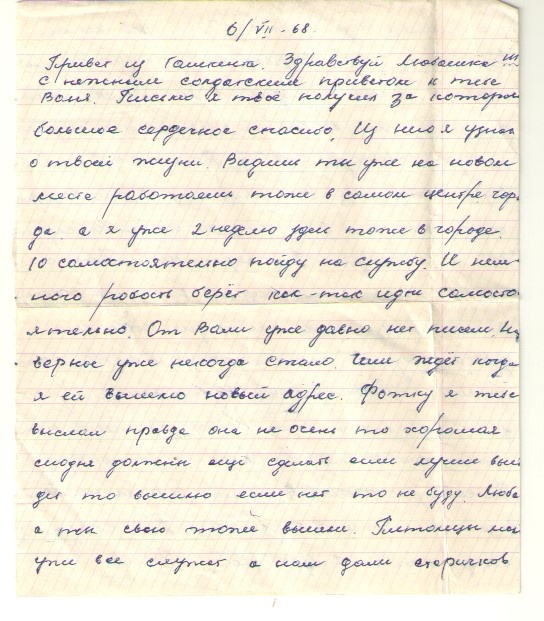 6/VII-68.
Привет из Ташкента. Здравствуй Любашка!!!
с нежным солдатским приветом к тебе
Ваня. Письмо я твоё получил за которое
большое сердечное спасибо. Из него я узнал
о твоей жизни. Видиш ты уже на новом
месте работаеш тоже в самом центре горо
да а я уже 2 неделю здесь тоже в городе.
10 самостоятельно пойду на службу. И нем
ного робость берёт как-так идти самосто
ятельно. От Вали уже давно нет писем. На
верное уже некогда стало. Или ждёт когда
я ей вышлю новый адрес. Фотку я тебе
выслал правда она не очень то хорошая
сегодня должны ещё сделать если лучше вый
дет то вышлю если нет то не буду. Люба
а ты свою тоже вышли. Питомцы мои
уже все служат а нам дали старичков